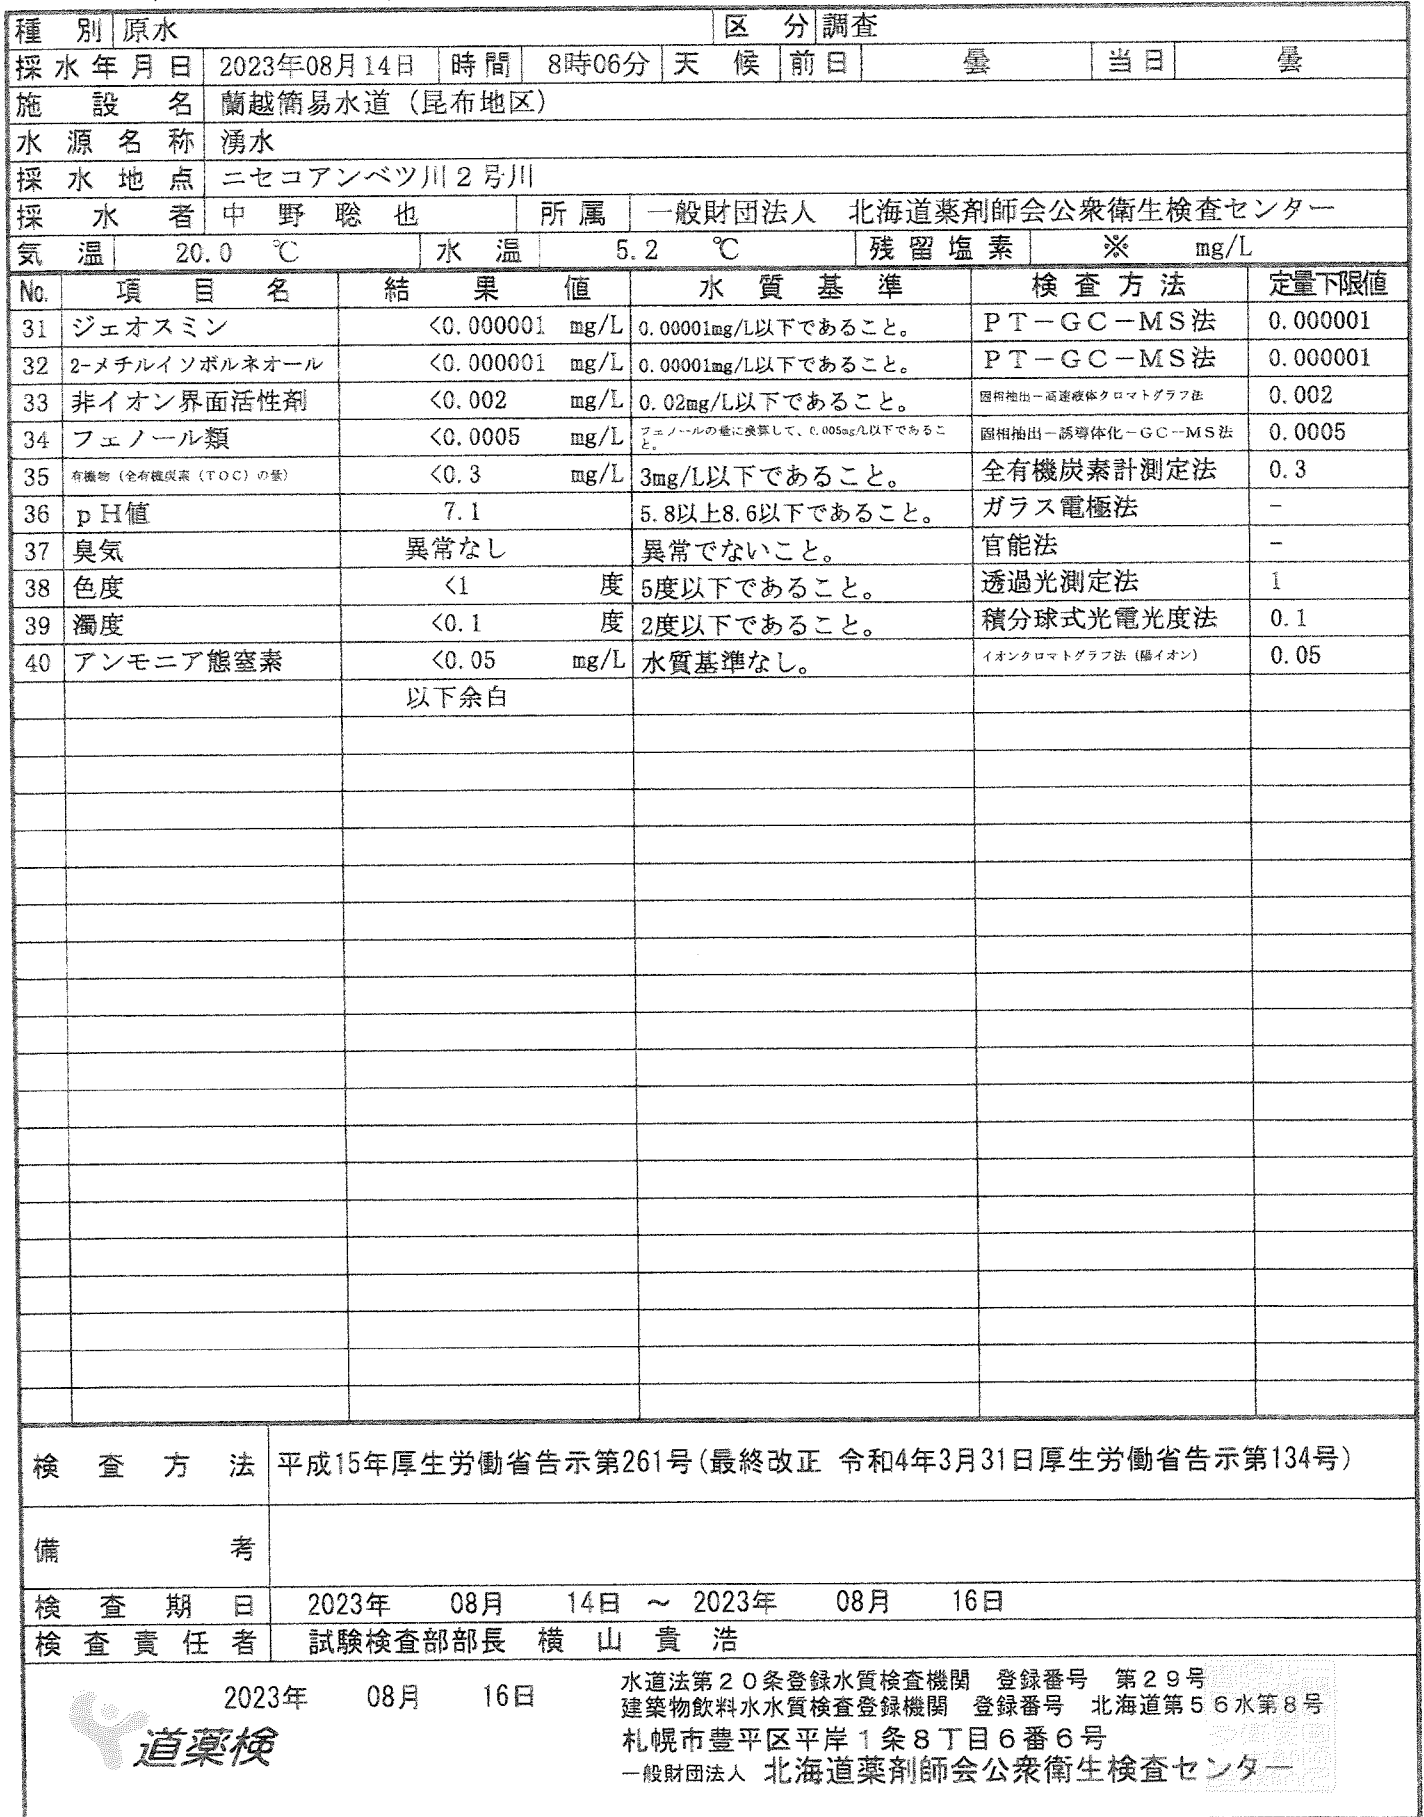 種 別 原水 区 分 調査
採水年月日 2023年08月14日 時間 8時06分 天 候 前日 曇 当日 曇
施 設 名 蘭越簡易水道（昆布地区）
水 源 名 称 湧水
採 水 地 点 ニセコアンベツ川２号川
採 水 者 中 野 聡 也 所属 一般財団法人 北海道薬剤師会公衆衛生検査センター
気 温 20.0 ℃ 水 温 5.2 ℃ 残留塩素 ※ mg/L
No. 項 目 名 結 果 値 水 質 基 準 検 査 方 法 定量下限値
31 ジェオスミン <0.000001 mg/L 0.00001mg/L以下であること。 ＰＴ－ＧＣ－ＭＳ法 0.000001
32 2-メチルイソボルネオール <0.000001 mg/L 0.00001mg/L以下であること。 ＰＴ－ＧＣ－ＭＳ法 0.000001
33 非イオン界面活性剤 <0.002 mg/L 0.02mg/L以下であること。 固相抽出－高速液体クロマトグラフ法 0.002
34 フェノール類 <0.0005 mg/L フェノールの量に換算して、0.005mg/L以下であること。 固相抽出－誘導体化－ＧＣ－ＭＳ法 0.0005
35 有機物（全有機炭素（ＴＯＣ）の量） <0.3 mg/L 3mg/L以下であること。 全有機炭素計測定法 0.3
36 ｐＨ値 7.1 5.8以上8.6以下であること。 ガラス電極法 －
37 臭気 異常なし 異常でないこと。 官能法 －
38 色度 <1 度 5度以下であること。 透過光測定法 1
39 濁度 <0.1 度 2度以下であること。 積分球式光電光度法 0.1
40 アンモニア態窒素 <0.05 mg/L 水質基準なし。 イオンクロマトグラフ法（陽イオン） 0.05
以下余白
検 査 方 法 平成15年厚生労働省告示第261号(最終改正 令和4年3月31日厚生労働省告示第134号)
備 考
検 査 期 日 2023年 08月 14日 ～ 2023年 08月 16日
検 査 責 任 者 試験検査部部長 横 山 貴 浩
2023年 08月 16日
道薬検
水道法第２０条登録水質検査機関 登録番号 第２９号
建築物飲料水水質検査登録機関 登録番号 北海道第５６水第８号
札幌市豊平区平岸１条８丁目６番６号
一般財団法人 北海道薬剤師会公衆衛生検査センター